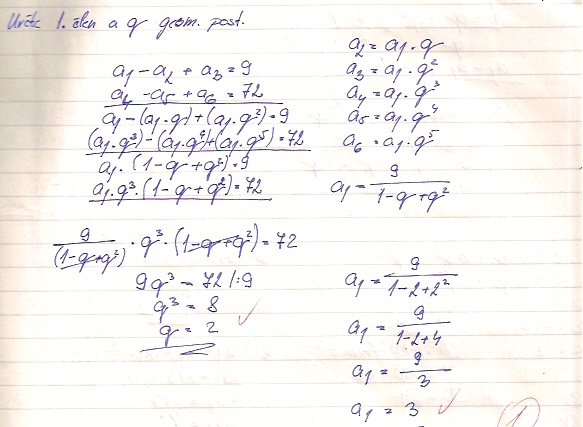 Určete 1. člen a q geom. post.
a₁ - a₂ + a₃ = 9
a₄ - a₅ + a₆ = 72
a₁ - (a₁·q) + (a₁·q²) = 9
(a₁·q³) - (a₁·q⁴) + (a₁·q⁵) = 72
a₁·(1 - q + q²) = 9
a₁·q³·(1 - q + q²) = 72
a₂ = a₁·q
a₃ = a₁·q²
a₄ = a₁·q³
a₅ = a₁·q⁴
a₆ = a₁·q⁵
a₁ = 9/(1 - q + q²)
9/(1 - q + q²) · q³ · (1 - q + q²) = 72
9q³ = 72 /:9
q³ = 8
q = 2 ✓
a₁ = 9/(1 - 2 + 2²)
a₁ = 9/(1 - 2 + 4)
a₁ = 9/3
a₁ = 3 ✓
1